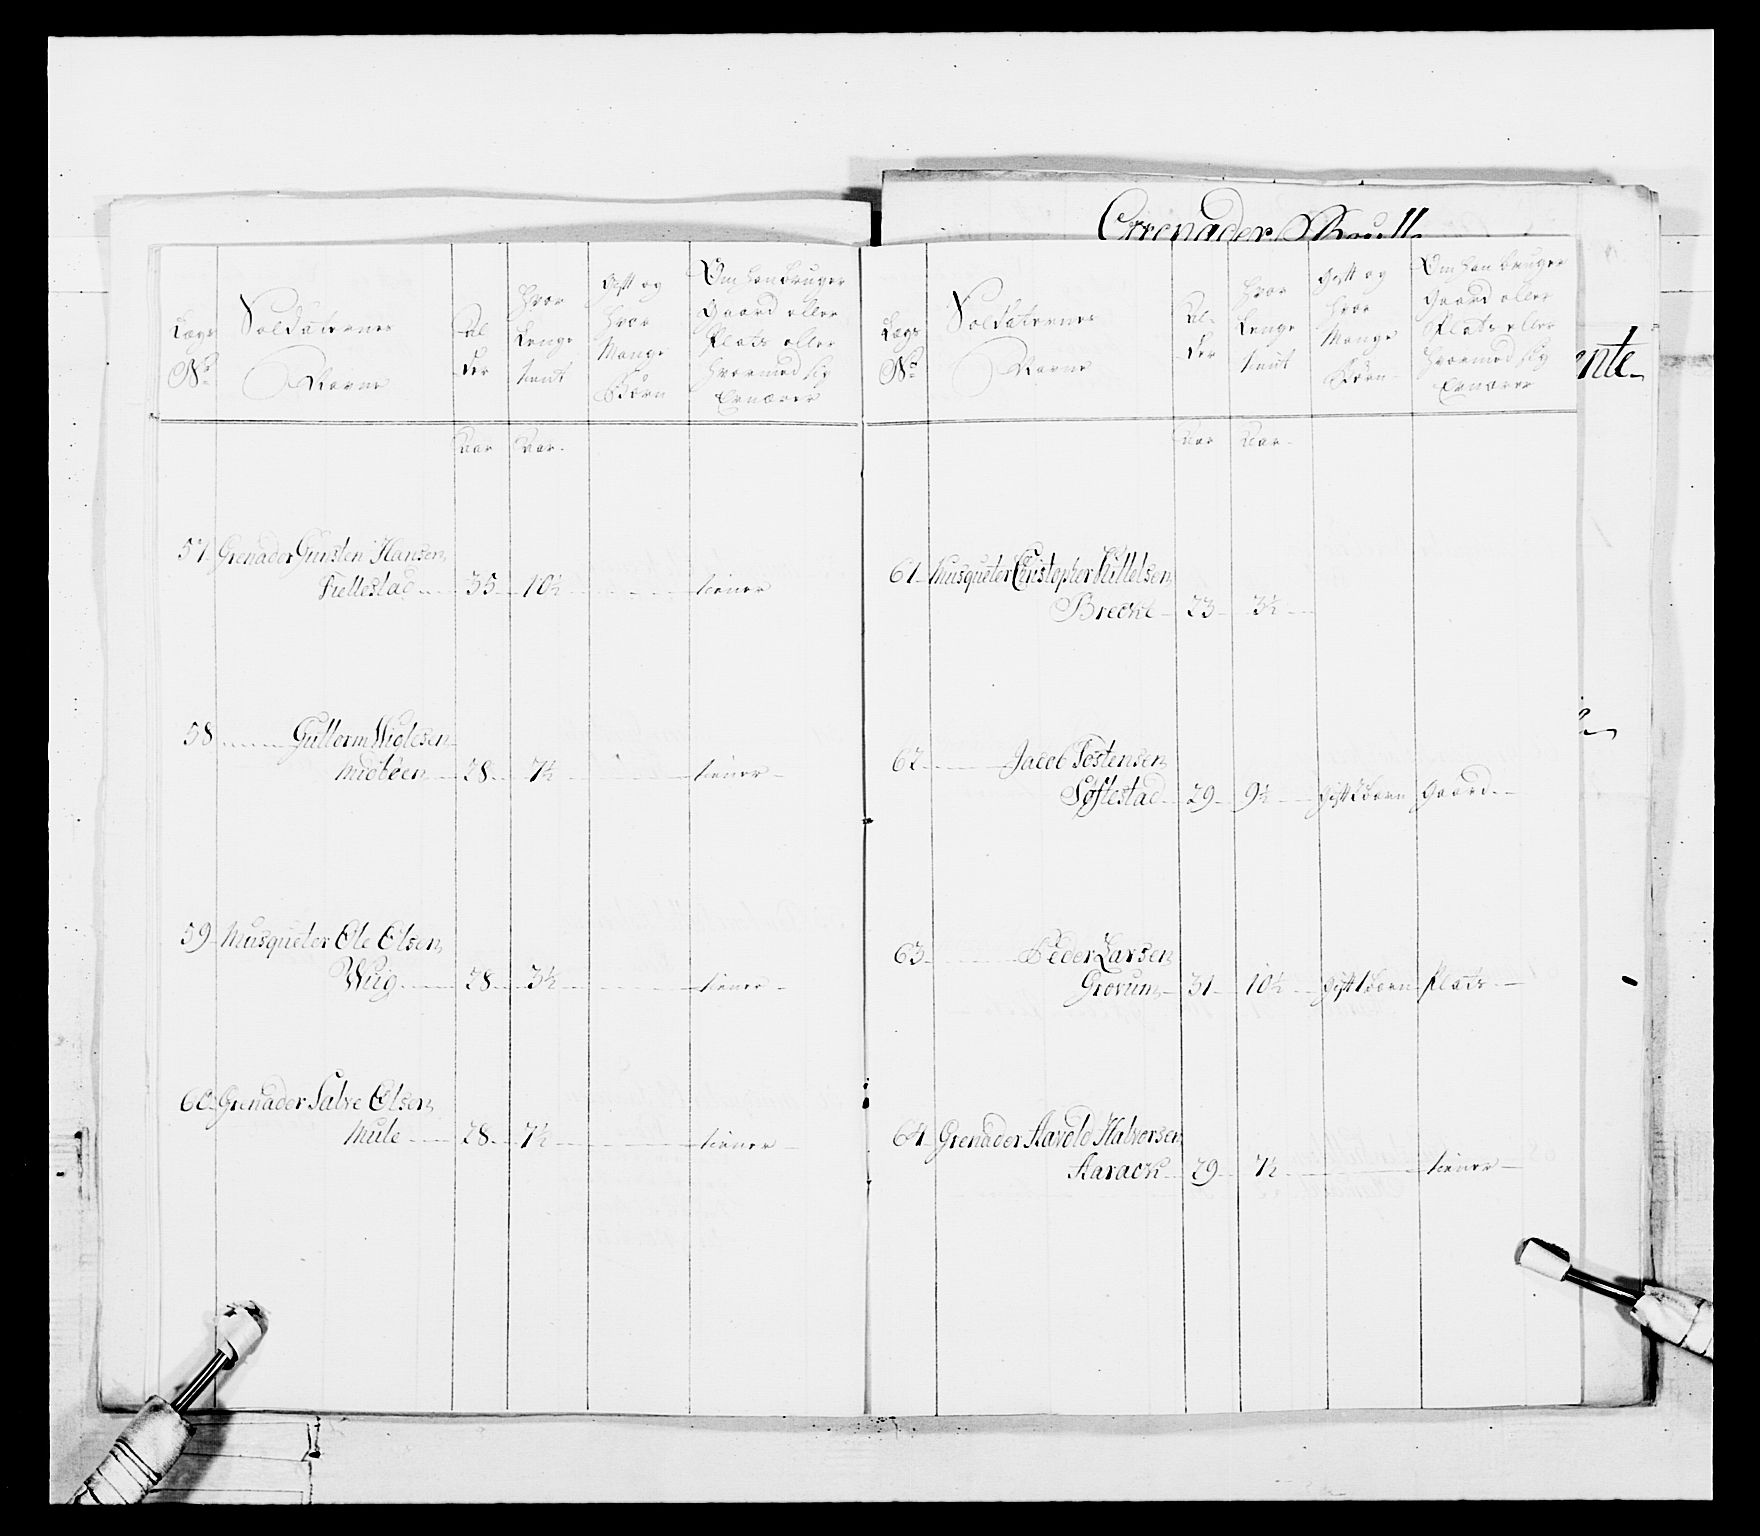 Grenader Rull
Lægs
No
Soldaternes
Navne
Al
der
Hvor
Lenge
tient
Gift og
Hvor
Mange
Børn
Om han bruger
Gaard eller
Plats eller
Hvormed sig
Ernærer
Aar
Aar
57 Grenader Giusten Hansen
Fiellestad 35 10½ tiener
58 Guttorm Wiglesen
Midbøen 28 7½ tiener
59 Musqueter Ole Olsen
Wiig 28 3½ tiener
60 Grenader Salve Olsen
Mule 28 7½ tiener
Lægs
No
Soldaternes
Navne
Al-
der
Hvor
Lenge
tient
Gift og
Hvor
Mange
Børn
Om han bruger
Gaard eller
Plats eller
Hvormed sig
Ernærer
Aar
Aar
61 Musqueter Christopher Kittelsen
Brecke 23 3½
62 Jacob Tostensen
Søftestad 29 9½ Gift 2 børn Gaard
63 Peder Larsen
Grovum 31 10½ Gift 1 barn Plats
64 Grenader Aavold Halvorsen
Aarack 29 7½ tiener